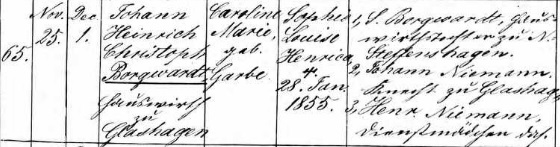 65.
Nov.
25.
Dec.
1.
Johann
Heinrich
Christoph
Borgwardt
Hauswirth
zu
Glashagen
Caroline
Marie
geb.
Garbe
Sophie
Louise
Henrica
28. Jan.
1855.
1, S. Borgwardt, Haus
wirthstochter zu N.
Steffenshagen.
2, Johann Niemann,
Knecht zu Glashag.
3, Henr. Niemann,
Dienstmädchen das.